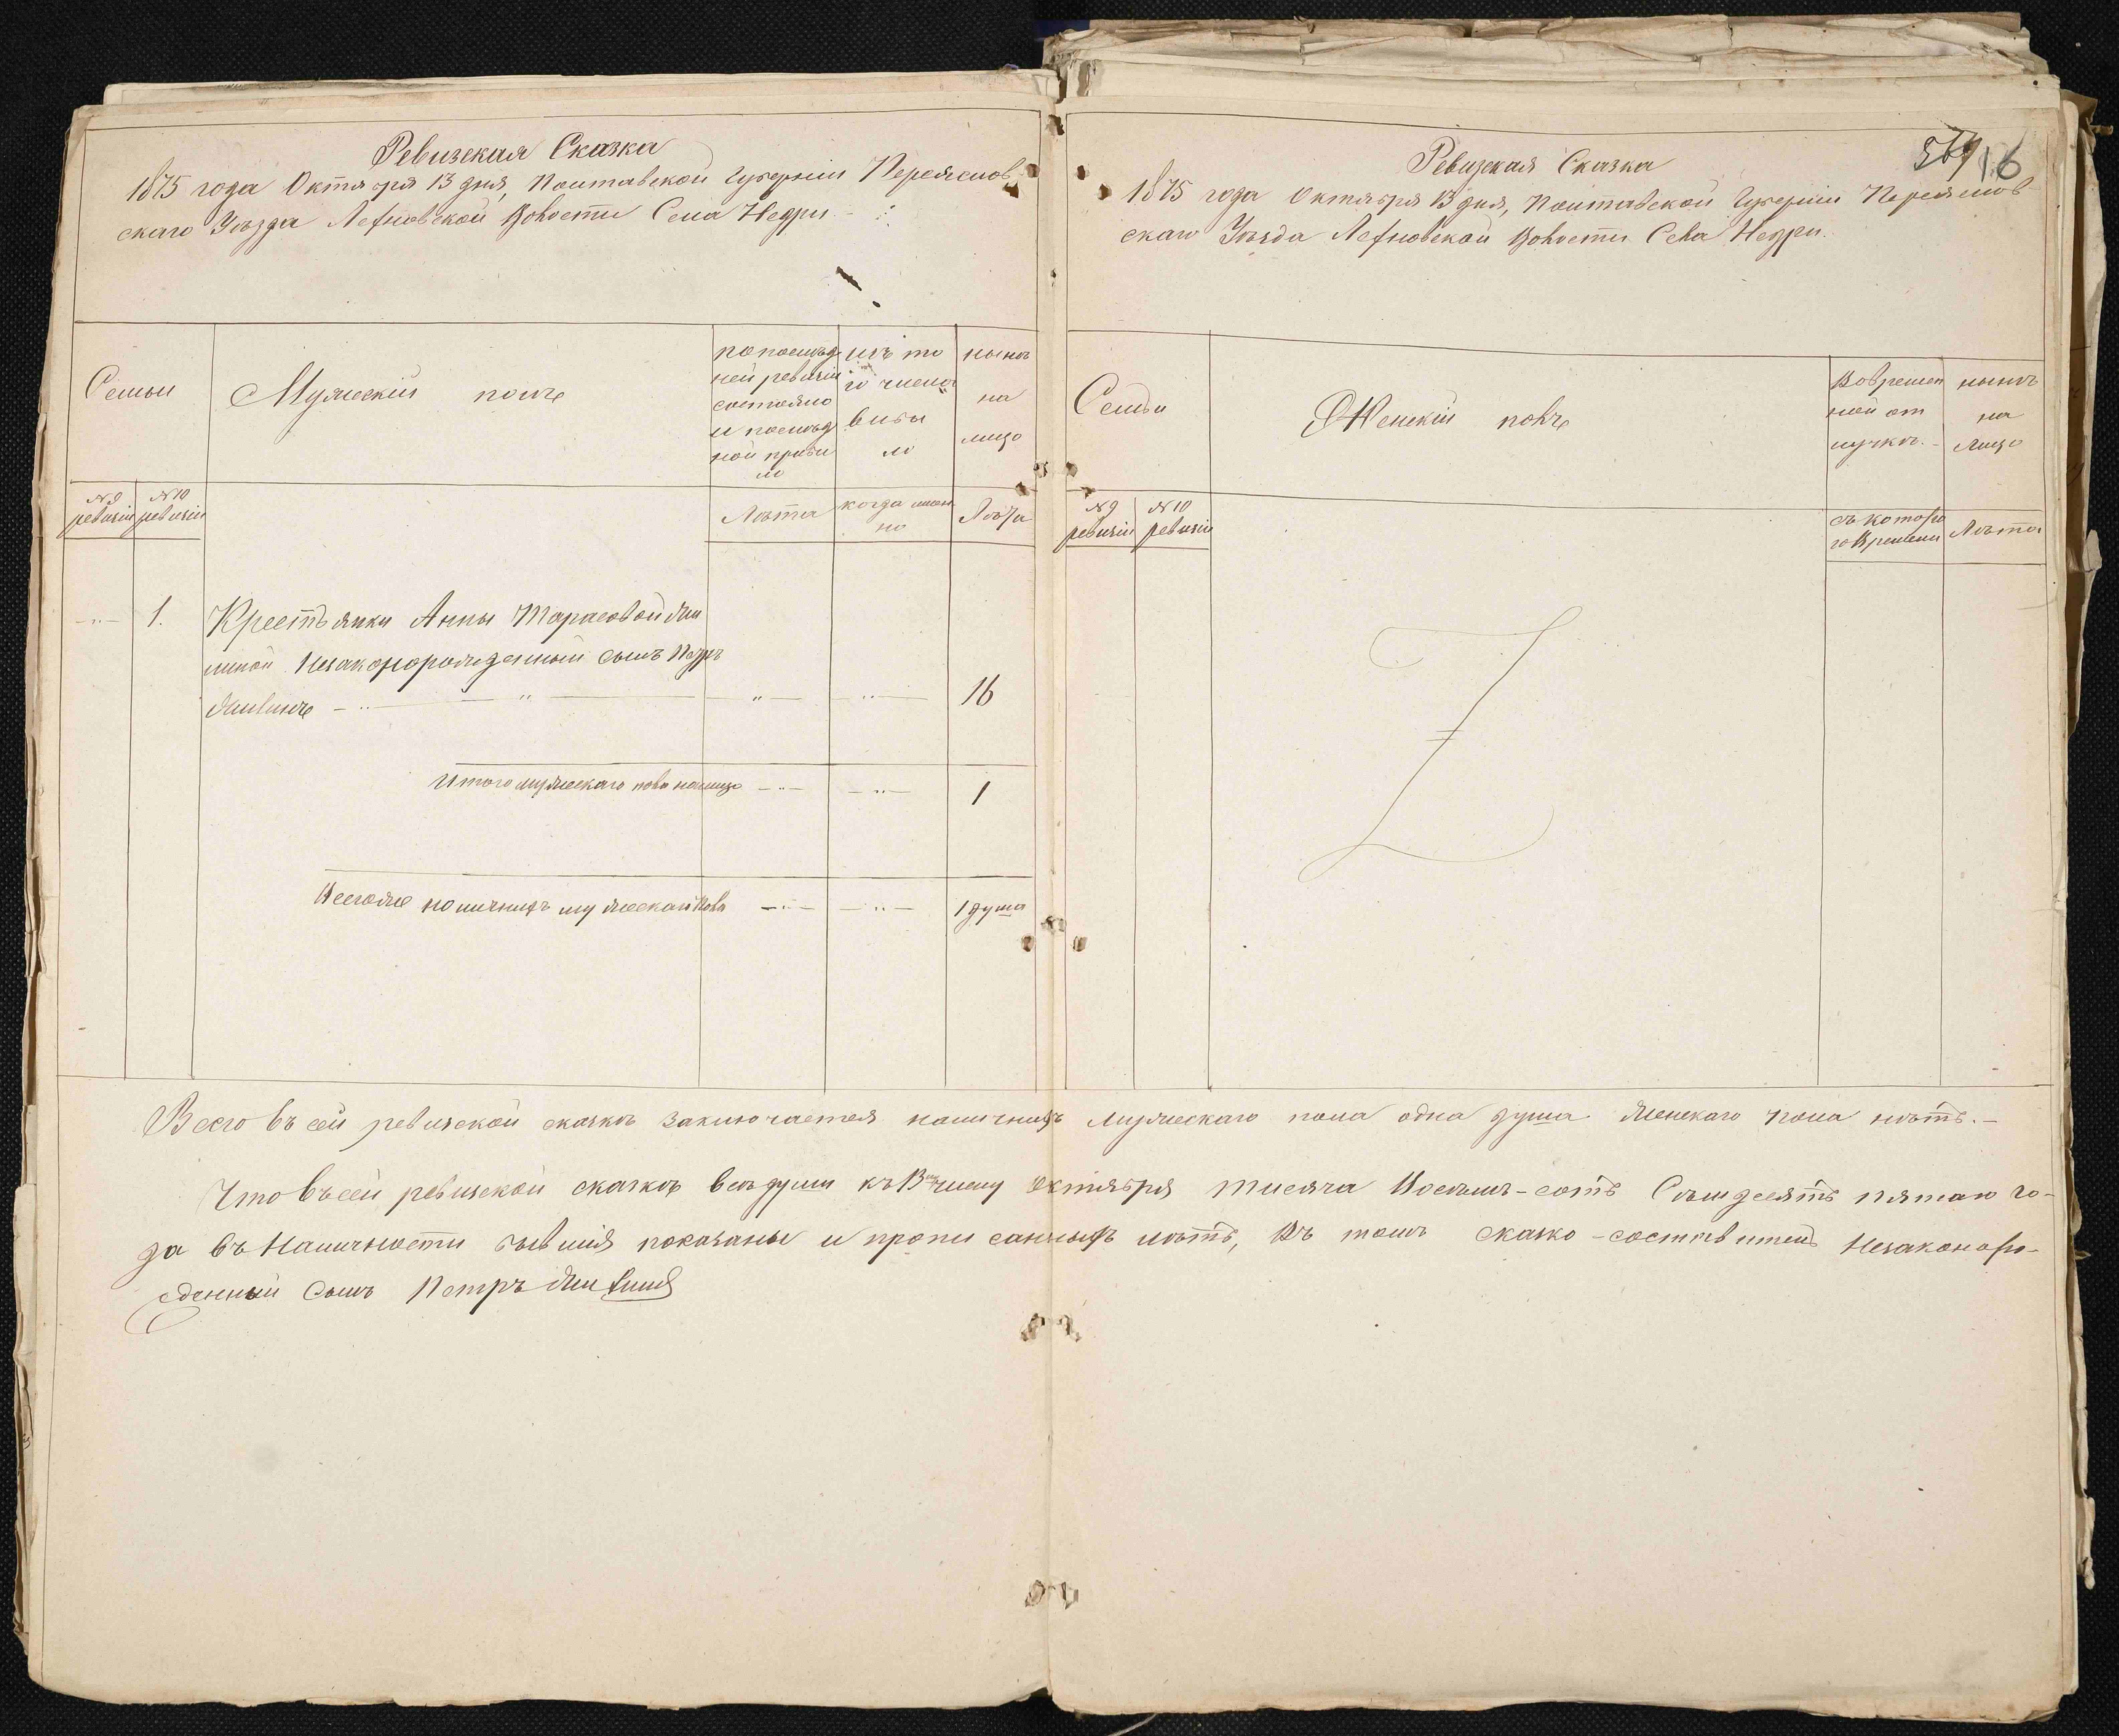 Ревизская Сказка
1875 года Октября 13 дня, Полтавской Губерніи Переяслов-
скаго Уѣзда Лехновской Волости Села Недри
Семьи
Мужескій полъ
по послѣд
ней ревизіи
состояло
и послѣд
ной прибы
ло
изъ то
го числа
выбы
ло
нынѣ
на
лицо
№ 9
ревизіи
№ 10
ревизіи
Лѣта
когда имен
но
Лѣта
1.
Крестьянки Анны Тарасовой
незаконорожденный сынъ Петръ
16
Итого мужескаго пола налицо
1
Всего же наличныхъ мужескаго пола
1 душа
569
16
Ревизская Сказка
1875 года Октября 13 дня, Полтавской Губерніи Переяслов-
скаго Уѣзда Лехновской Волости Села Недри.
Семьи
Женскій полъ
Во времен
ной от
лучкѣ.
нынѣ
на
Лицо
№ 9
ревизіи
№ 10
ревизіи
съ которо
го Времени
Лѣта
Всего въ сей ревизской сказкѣ заключается наличныхъ Мужескаго пола одна душа Женскаго пола нѣтъ.—
Что въ сей ревизской сказкѣ всѣ души къ 13му числу октября тисяча Восемь-сотъ Семдесятъ пятаго го-
да въ Наличности бывшія показаны и прописанныхъ нѣтъ, Въ томъ сказко-составитель Незаконоро-
жденный Сынъ Петръ